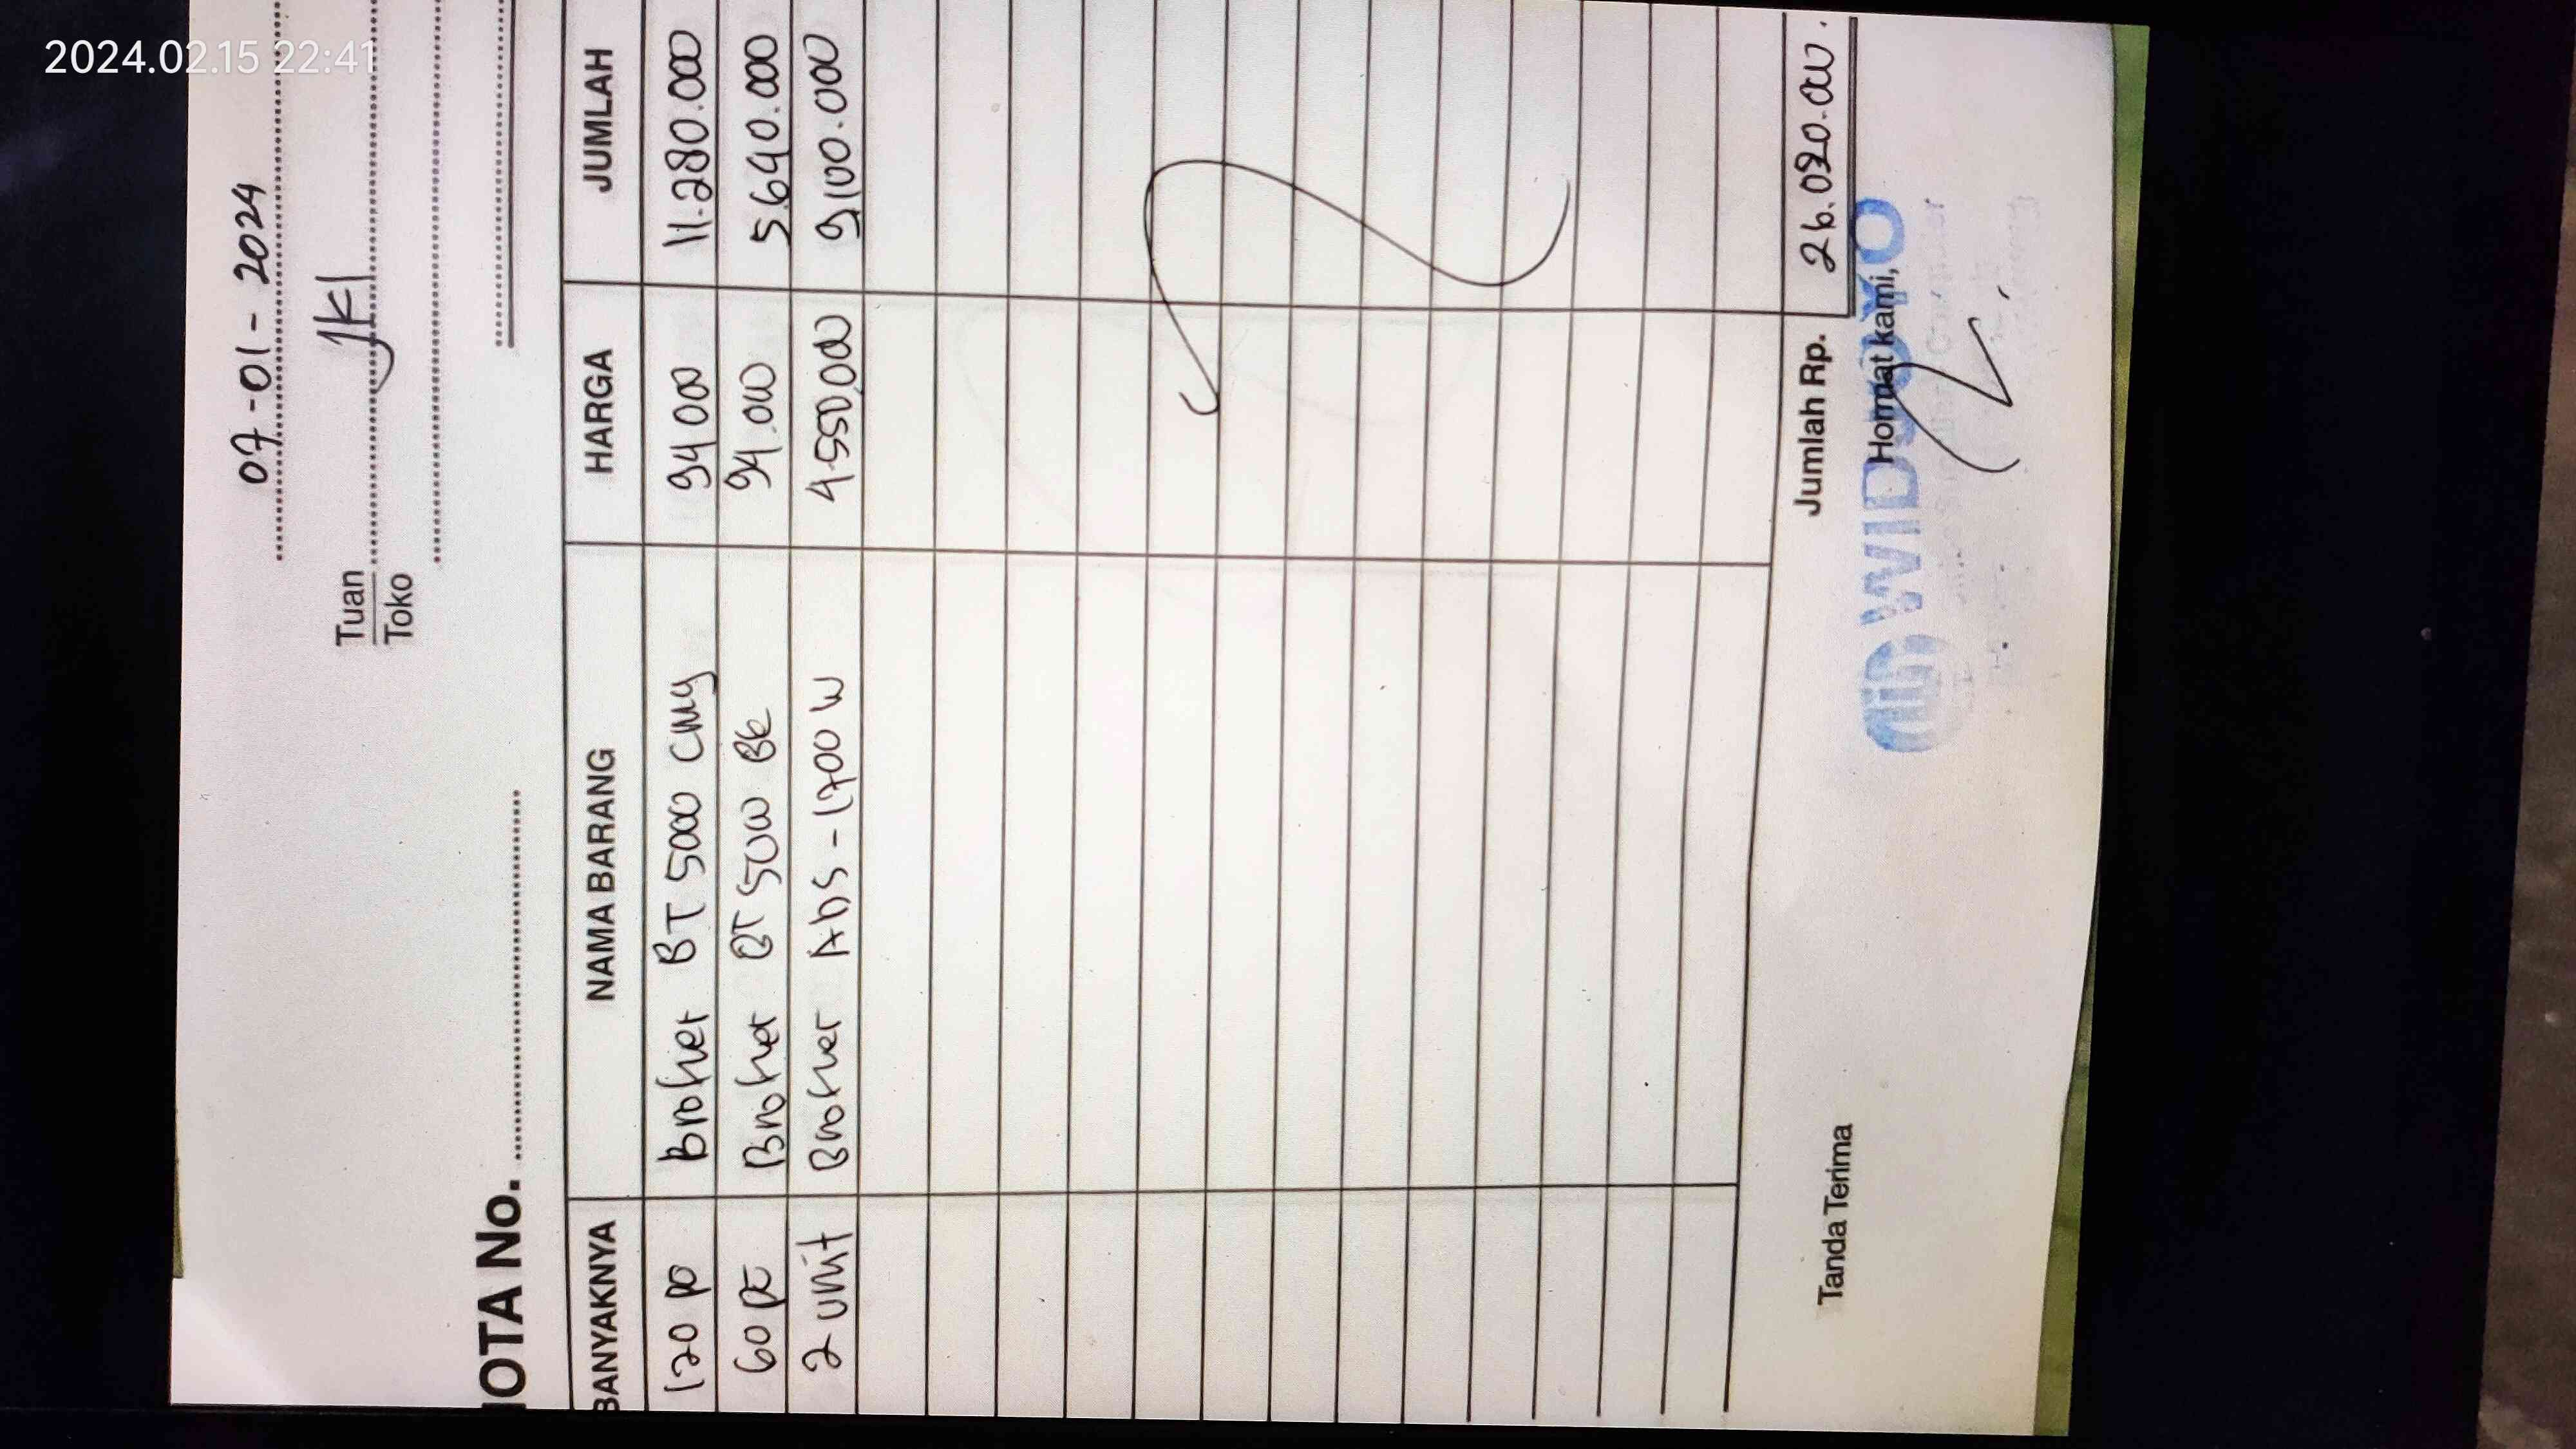 2024.02.15 22:41
07-01-2024
Tuan JKI
Toko
NOTA No.
BANYAKNYA NAMA BARANG HARGA JUMLAH
120 pc Brother BT 5000 CMY 94 000 11.280.000
60 pc Brother BT 5000 BK 94.000 5.640.000
2 unit Brother Ads-1700 W 4.550,000 9,100.000
Jumlah Rp. 26.020.000.
Tanda Terima Hormat kami,
WIDODO